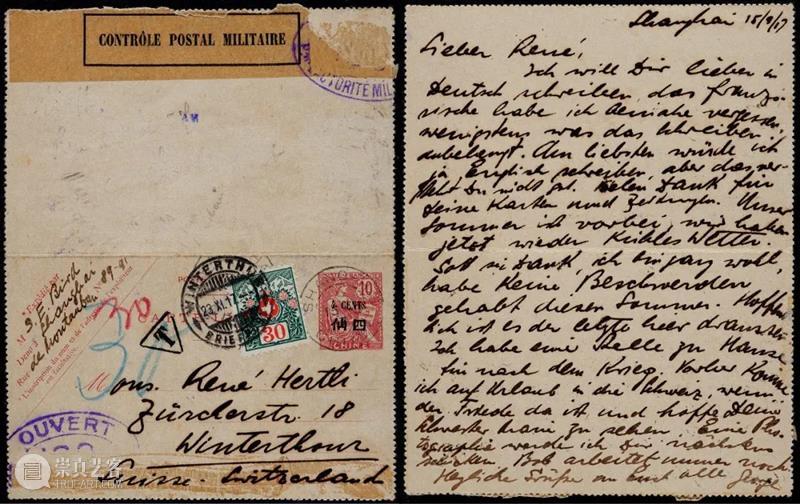 CONTRÔLE POSTAL MILITAIRE
AUTORITÉ MIL
S. E. Bird
Shanghai
89-91
30
T
WINTERTHUR
23.XI.17
BRIEF
30
10
4 CENTS
仙四
CHINE
Mons. René Hertli
Zürcherstr. 18
Winterthour
Suisse. Switzerland
OUVERT
Shanghai 15/9/17
Lieber René,
Ich will Dir lieber in
Deutsch schreiben, das französische
habe ich beinahe vergessen
wenigstens was das schreiben
anbelangt. Am liebsten würde ich
ja Englisch schreiben, aber das ver-
steht Du nicht gut. Vielen Dank für
Deine Karten und Zeitungen. Unser
Sommer ist vorbei, wir haben
jetzt wieder kühles Wetter.
Gott sei Dank, ich bin ganz wohl,
habe keine Beschwerden
gehabt diesen Sommer. Hoffent-
lich ist es der letzte hier draussen
Ich habe eine Stelle zu Hause
für nach dem Krieg. Vorher komme
ich auf Urlaub in die Schweiz, wenn
der Friede da ist und hoffe Deine
Schwester zu sehen. Eine Pho-
tographie werde ich Dir nächstens
Bob arbeitet immer noch
Herzliche Grüße an Euch alle
崇真艺客